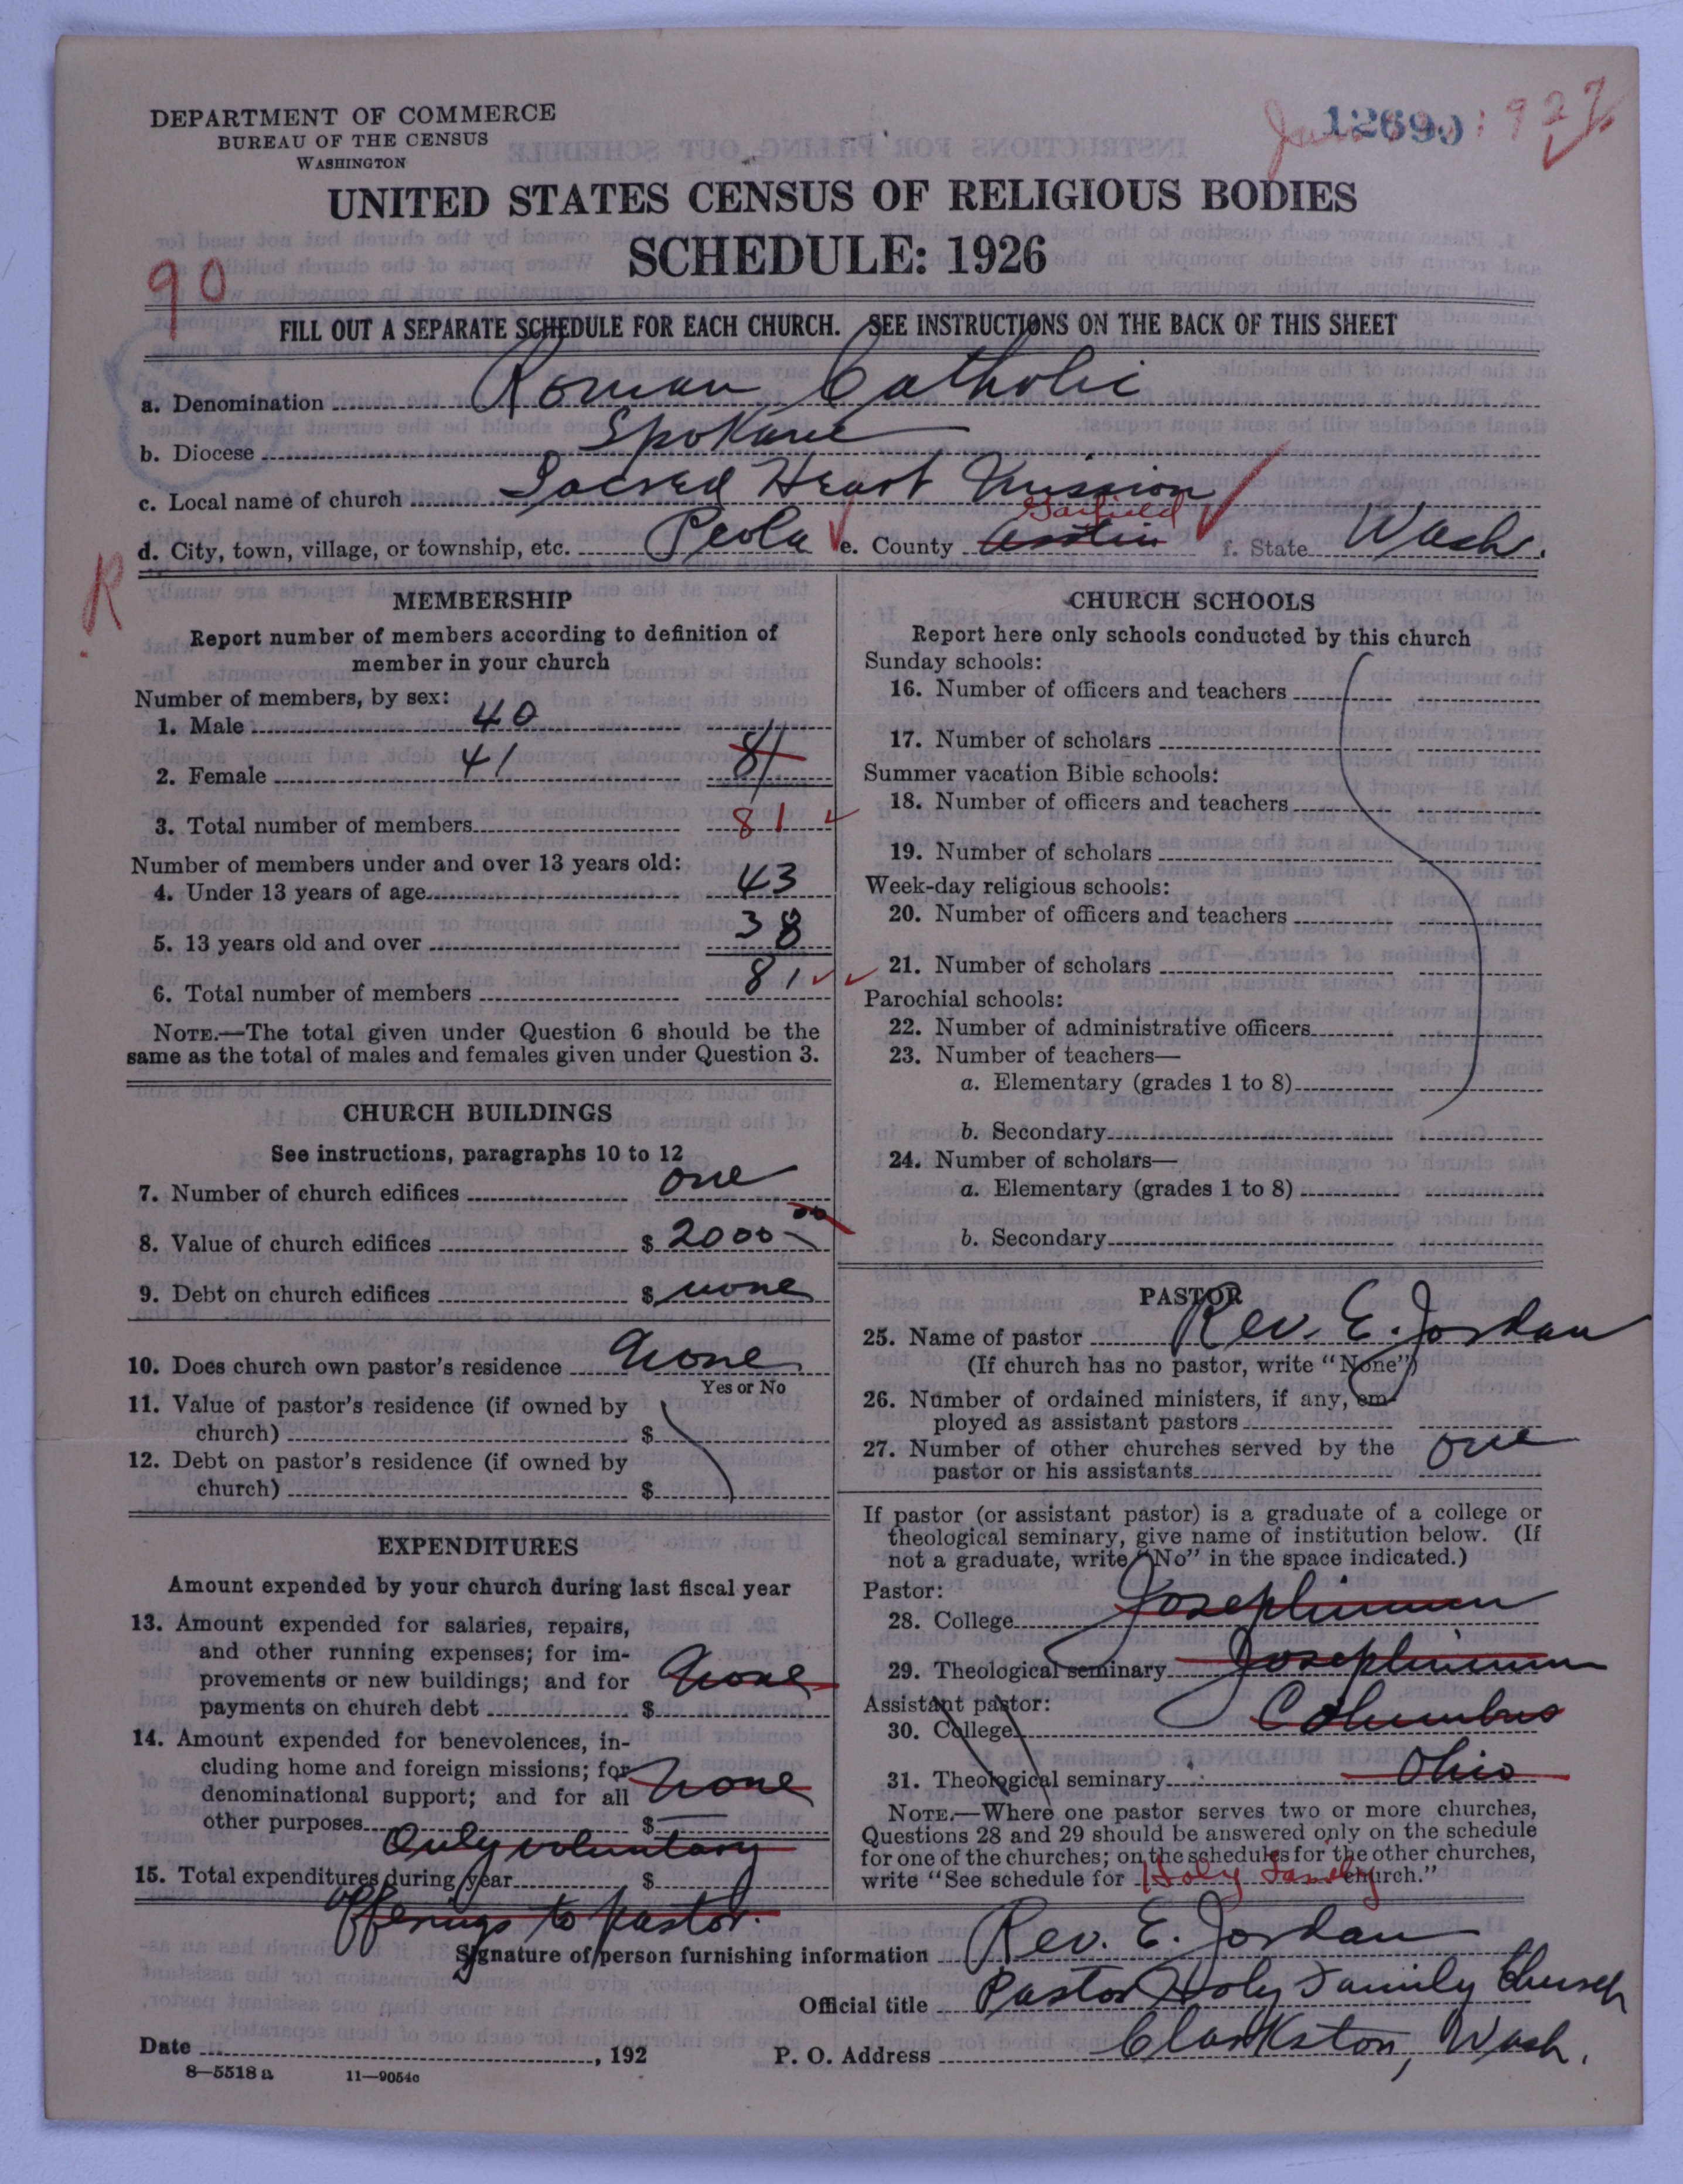 DEPARTMENT OF COMMERCE
BUREAU OF THE CENSUS
WASHINGTON
12690
1927
UNITED STATES CENSUS OF RELIGIOUS BODIES
SCHEDULE: 1926
90
FILL OUT A SEPARATE SCHEDULE FOR EACH CHURCH. SEE INSTRUCTIONS ON THE BACK OF THIS SHEET
a. Denomination Roman Catholic
b. Diocese Spokane
c. Local name of church Sacred Heart Mission
Garfield
d. City, town, village, or township, etc. Peola e. County Asotin f. State Wash.
R
MEMBERSHIP
Report number of members according to definition of
member in your church
Number of members, by sex:
1. Male 40
2. Female 41 81
3. Total number of members 81
Number of members under and over 13 years old:
4. Under 13 years of age 43
5. 13 years old and over 38
6. Total number of members 81
NOTE.—The total given under Question 6 should be the
same as the total of males and females given under Question 3.
CHURCH BUILDINGS
See instructions, paragraphs 10 to 12
7. Number of church edifices one
8. Value of church edifices $ 2000 00
9. Debt on church edifices $ none
10. Does church own pastor's residence None
Yes or No
11. Value of pastor's residence (if owned by
church) $
12. Debt on pastor's residence (if owned by
church) $
EXPENDITURES
Amount expended by your church during last fiscal year
13. Amount expended for salaries, repairs,
and other running expenses; for im-
provements or new buildings; and for None
payments on church debt $
14. Amount expended for benevolences, in-
cluding home and foreign missions; for
denominational support; and for all None
other purposes $
Only voluntary
15. Total expenditures during year $
offerings to pastor.
CHURCH SCHOOLS
Report here only schools conducted by this church
Sunday schools:
16. Number of officers and teachers
17. Number of scholars
Summer vacation Bible schools:
18. Number of officers and teachers
19. Number of scholars
Week-day religious schools:
20. Number of officers and teachers
21. Number of scholars
Parochial schools:
22. Number of administrative officers
23. Number of teachers—
a. Elementary (grades 1 to 8)
b. Secondary
24. Number of scholars—
a. Elementary (grades 1 to 8)
b. Secondary
PASTOR
25. Name of pastor Rev. E. Jordan
(If church has no pastor, write "None")
26. Number of ordained ministers, if any, em-
ployed as assistant pastors
27. Number of other churches served by the one
pastor or his assistants
If pastor (or assistant pastor) is a graduate of a college or
theological seminary, give name of institution below. (If
not a graduate, write "No" in the space indicated.)
Pastor:
28. College Josephinum
29. Theological seminary Josephinum
Assistant pastor:
30. College Columbus
31. Theological seminary Ohio
NOTE.—Where one pastor serves two or more churches,
Questions 28 and 29 should be answered only on the schedule
for one of the churches; on the schedules for the other churches,
write "See schedule for Holy Family church."
Signature of person furnishing information Rev. E. Jordan
Official title Pastor Holy Family Church
Date , 192 P. O. Address Clarkston, Wash.
8—5518 a 11—9054c